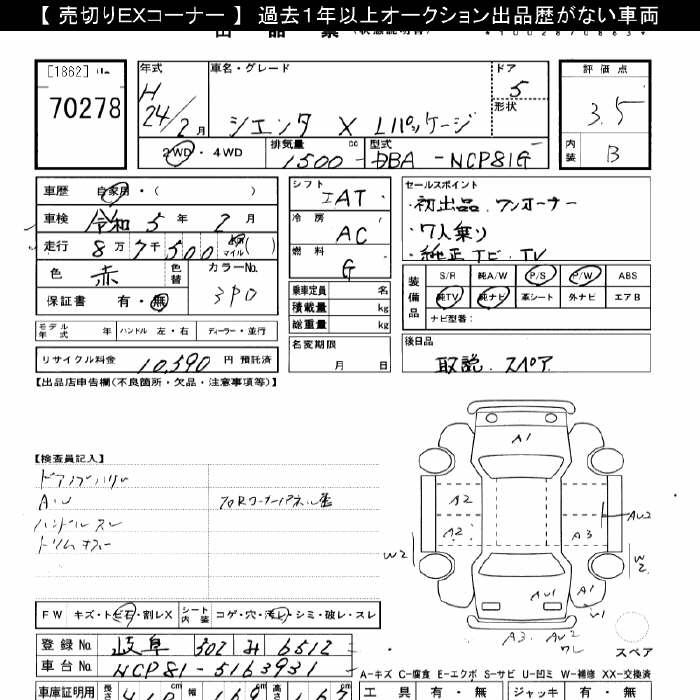 【 売切りEXコーナー 】 過去1年以上オークション出品歴がない車両
[1862]
70278
年式
H
24/2 月
車名・グレード
シエンタ X Lパッケージ
ドア
5
形状
2WD・4WD
排気量
1500 cc
型式
DBA - NCP81G
評価点
3.5
内装
B
車歴 自家用・( )
車検 令和 5 年 2 月
走行 8 万 7 千 500 km マイル ( )
色 赤 色替 カラーNo. 3P0
保証書 有・無
モデル年式 年 ハンドル 左・右 ディーラー・並行
リサイクル料金 10,590 円 預託済
シフト IAT
冷房 AC
燃料 G
乗車定員 名
積載量 kg
総重量 kg
名変期限
月 日
セールスポイント
・初出品. ワンオーナー
・7人乗り
・純正ナビ. TV
装備品
S/R 純A/W P/S P/W ABS
純TV 純ナビ 革シート 外ナビ エアB
ナビ型番:
後日品
取説. スペア
【出品店申告欄(不良箇所・欠品・注意事項等)】
【検査員記入】
ハンドルスレ
A1
A2
A2
A3
AU2
W2
W2
AU1
A1
W1
A3 AU2
スペア
FW キズ・トビ石・割レX シート内装 コゲ・穴・汚レ・シミ・破レ・スレ
登録No. 岐阜 502 み 6512
車台No. NCP81-5163931
A-キズ C-腐食 E-エクボ S-サビ U-凹ミ W-補修 XX-交換済
車庫証明用 長さ cm 幅 cm 高さ cm
工具 有・無 ジャッキ 有・無